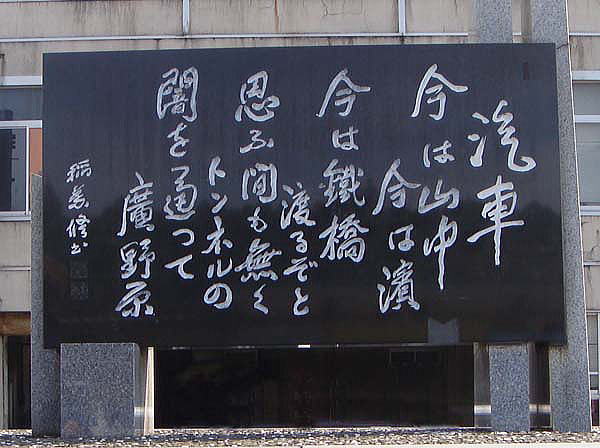 汽車
今は山中
今は濱
今は鐵橋
渡るぞと
思ふ間も無く
トンネルの
闇を通って
廣野原
稲葉修書